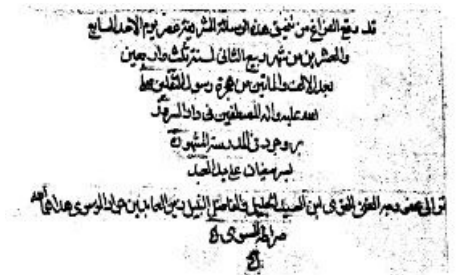 قد وقع الفراغ من تنميق هذه الرسالة الشريفة عصر يوم الاحد السابع
والعشرين من شهر ربيع الثانى لسنة ثلث واربعين
بعد الالف والماتين من هجرة رسول الثقلين صلى
الله عليه واله المصطفين فى دار السرور
بروجرد فى المدرسة المشهورة
على يد العبد
ابن السيد الجليل والفاضل النبيل زين العابدين جواد الموسوى هداهما الله
صراط السوى